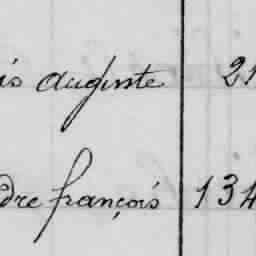 is auguste 21
dre françois 134